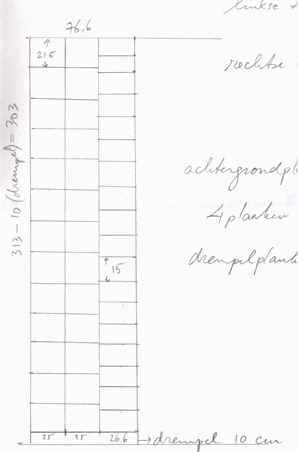 linkse
76,6
21,5
rechtse
313 - 10 (drempel) = 303
achtergrondpl
4 planken
15
drempelplank
25 25 26,6
→ drempel 10 cm